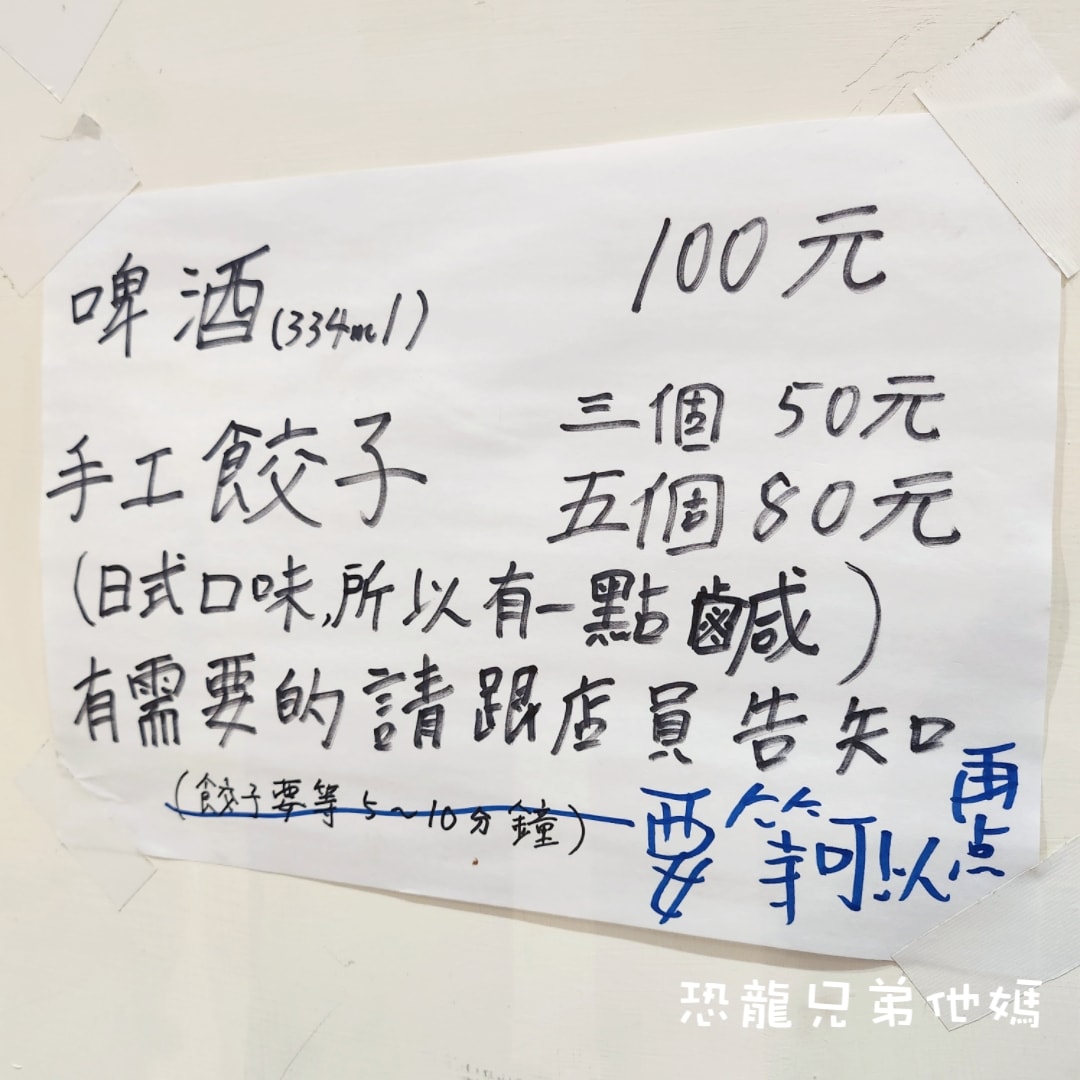 啤酒(334ml) 100元
手工餃子 三個 50元
五個 80元
(日式口味,所以有一點鹹)
有需要的請跟店員告知
(餃子要等5~10分鐘) 要等可以再点
恐龍兄弟他媽